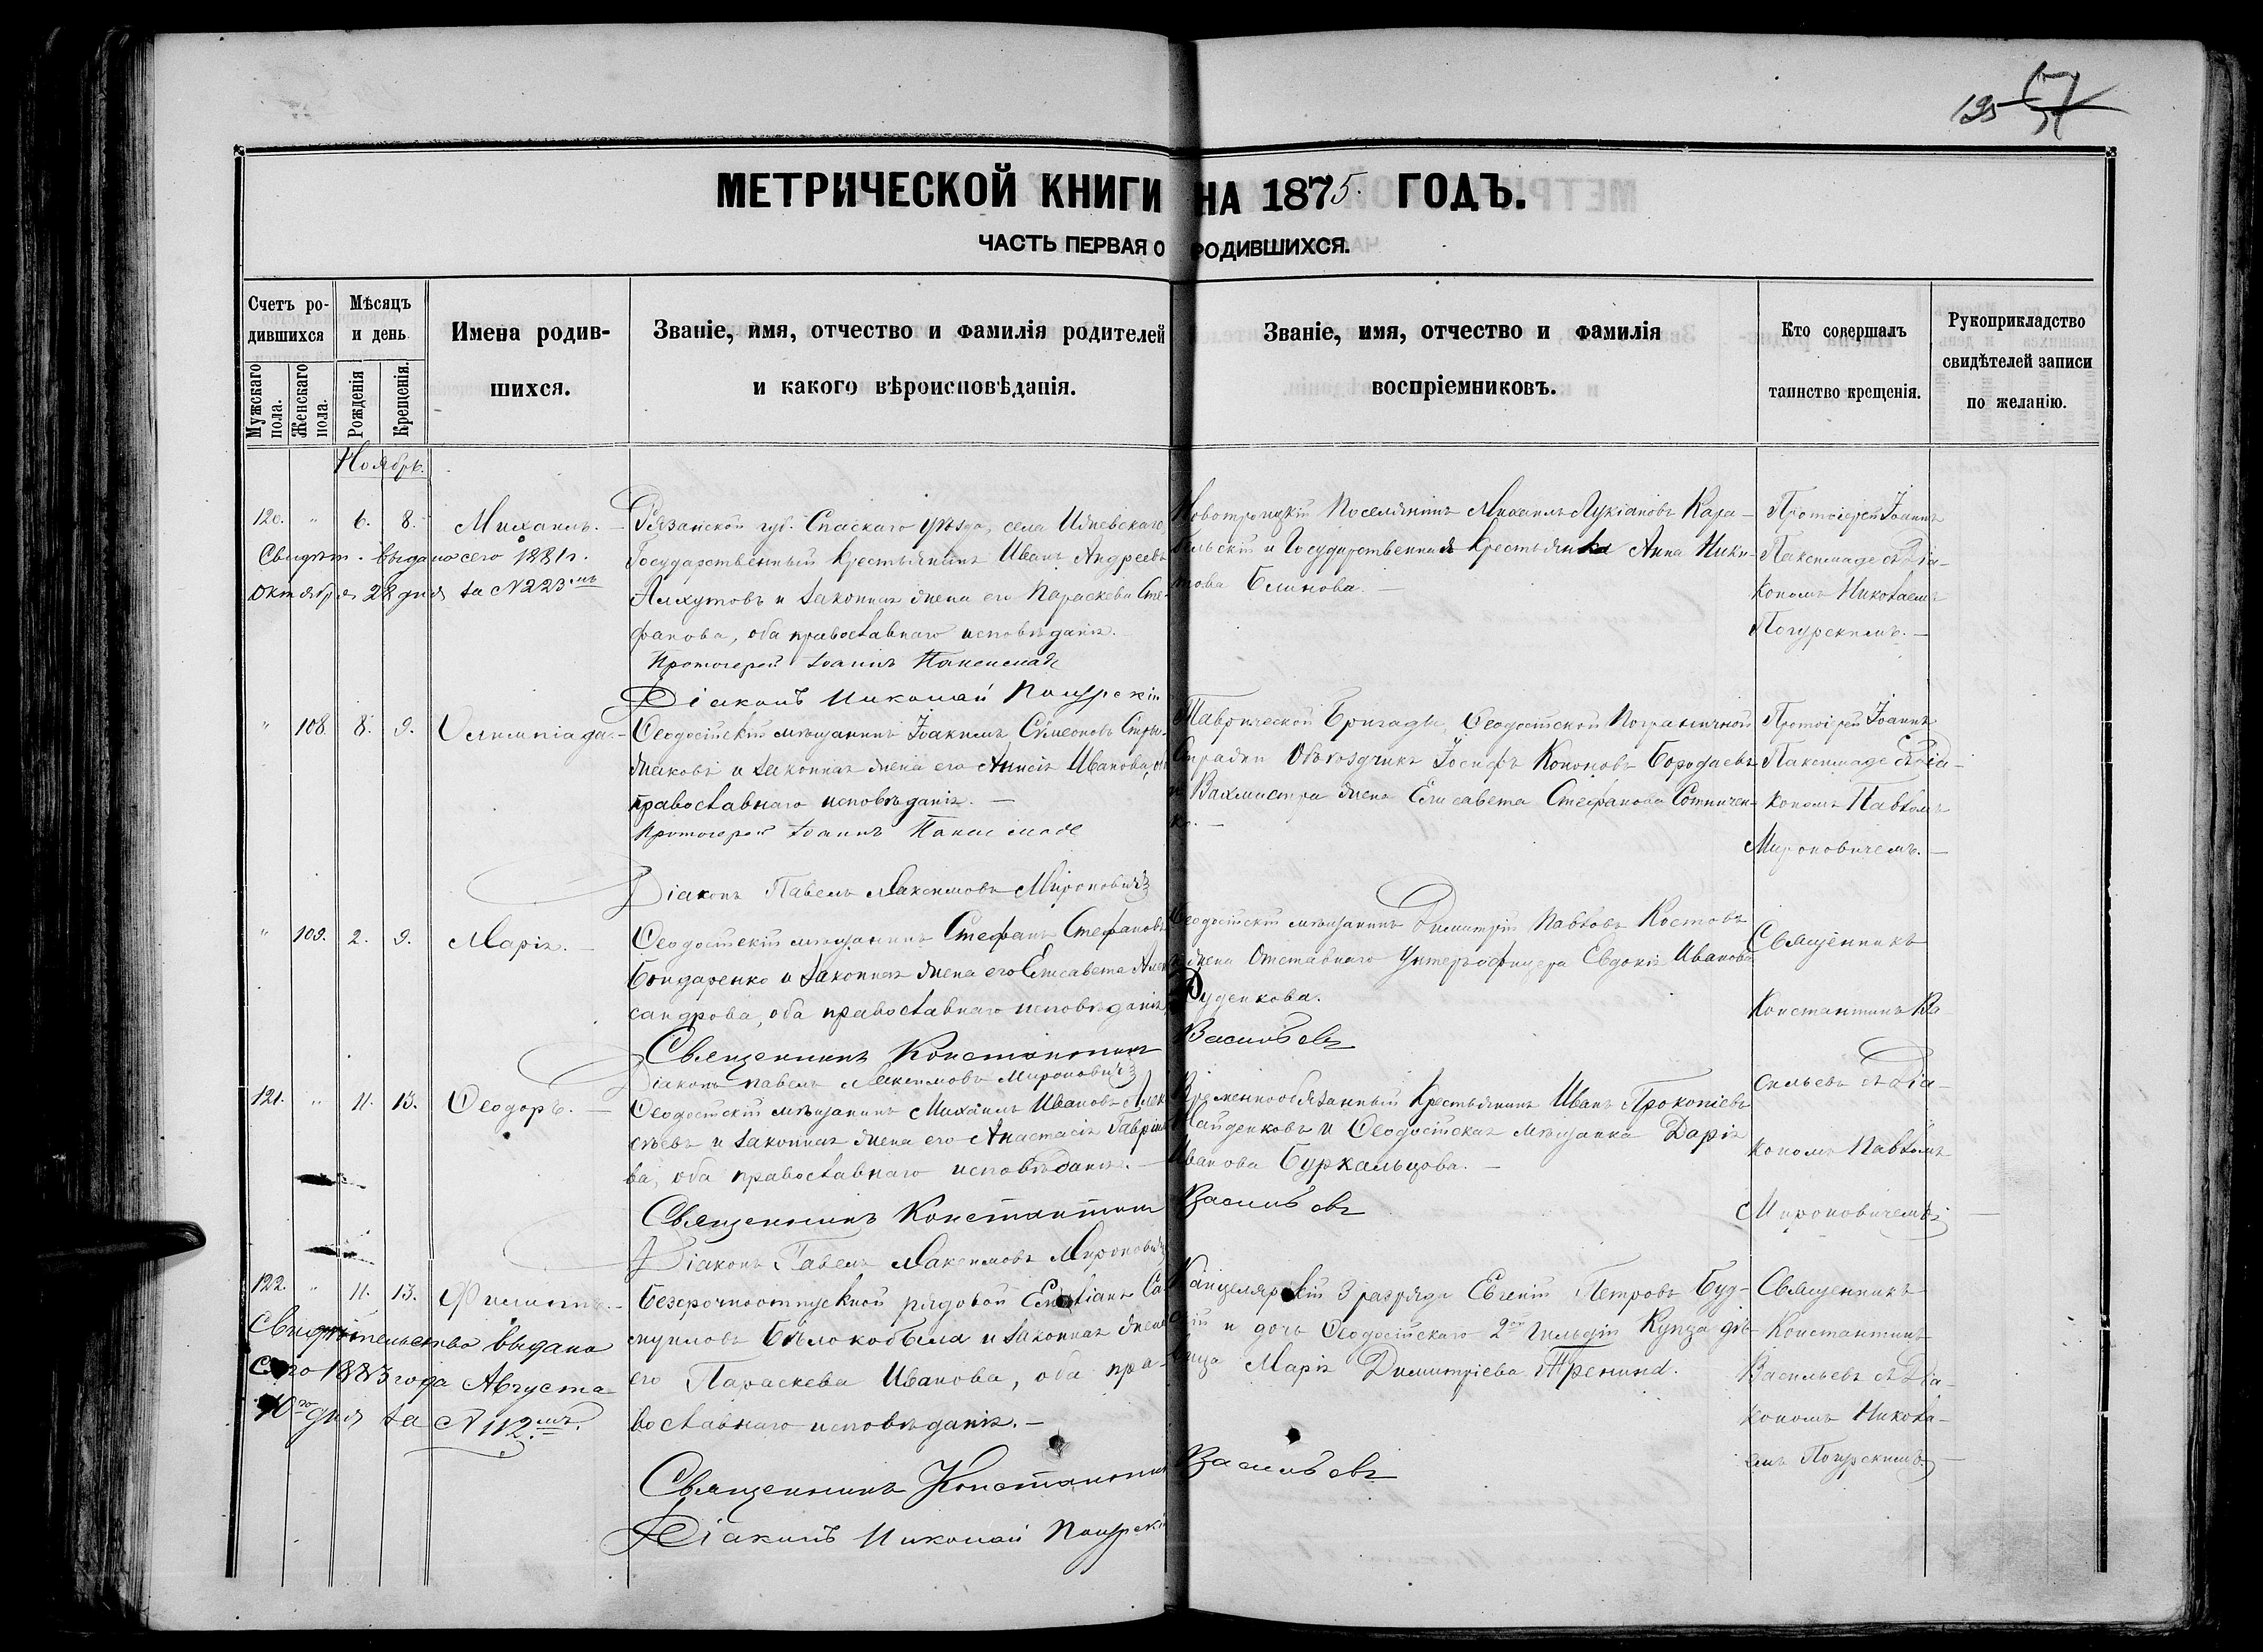 195 57
МЕТРИЧЕСКОЙ КНИГИ НА 1875. ГОДЪ.
ЧАСТЬ ПЕРВАЯ О РОДИВШИХСЯ.
Счетъ родившихся
Мужскаго пола.
Женскаго пола.
Мѣсяцъ и день
Рожденія
Крещенія.
Имена родив-
шихся.
Званіе, имя, отчество и фамилія родителей
и какого вѣроисповѣданія.
Званіе, имя, отчество и фамилія
воспріемниковъ.
Кто совершалъ
таинство крещенія.
Рукоприкладство
свидѣтелей записи
по желанію.
Ноябрь.
120. " 6. 8. Михаилъ. –
Свидѣт. выдано сего 1881 г.
Октября 22 дня за № 223мъ
Рязанской губ. Спаскаго уѣзда, села Ижевскаго
Государственный Крестьянинъ Иванъ Андреевъ
Алхутовъ и законная жена его Параскева Сте-
фанова, оба православнаго исповѣданія.
Протоіерей Іоаннъ Паксимаде
Діаконъ Николай Погурскій
Новотроицкій Поселянинъ Михаилъ Лукіановъ Кара-
бельскій и Государственная Крестьянка Анна Ники-
това Блинова. –
Протоіерей Іоаннъ
Паксимаде съ Діа-
кономъ Николаемъ
Погурскимъ. –
" 108. 8. 9. Олимпіада. –
Ѳеодосійскій мѣщанинъ Іоакимъ Сѵмеоновъ Стри-
жаковъ и законная жена его Анисія Иванова, оба
православнаго исповѣданія. –
Протоіерей Іоаннъ Паксимаде
Діаконъ Павелъ Максимовъ Мироновичъ
Таврической Бригады, Ѳеодосійской Пограничной
Стражи Объѣздчикъ Іосифъ Кононовъ Бородаевъ
и Вахмистра жена Елисавета Стефанова Сотничен-
ко. –
Протоіерей Іоаннъ
Паксимаде съ Діа-
кономъ Павломъ
Мироновичемъ. –
" 109. 2. 9. Марія. –
Ѳеодосійскій мѣщанинъ Стефанъ Стефановъ
Бондаренко и законная жена его Елисавета Алек-
сандрова, оба православнаго исповѣданія.
Священникъ Константинъ Васильевъ
Діаконъ Павелъ Максимовъ Мироновичъ
Ѳеодосійскій мѣщанинъ Димитрій Павловъ Костовъ
и жена Отставнаго Унтеръ-офицера Евдокія Иванова
Руденкова.
Священникъ
Константинъ Ва-
сильевъ съ Діа-
кономъ Павломъ
Мироновичемъ
121. " 11. 13. Ѳеодоръ. –
Ѳеодосійскій мѣщанинъ Михаилъ Ивановъ Алек-
сѣевъ и законная жена его Анастасія Гаврило-
ва, оба православнаго исповѣданія. –
Священникъ Константинъ Васильевъ
Діаконъ Павелъ Максимовъ Мироновичъ
Временнообязанный Крестьянинъ Иванъ Прокопіевъ
Найденковъ и Ѳеодосійская мѣщанка Дарія
Иванова Буркальцова. –
122. " 11. 13. Филиппъ. –
Свидѣтельство выдано
сего 1883 года Августа
10го дня за № 112мъ.
Безсрочноотпускной рядовой Емиліанъ Са-
муиловъ Бѣлокобыла и законная жена
его Параскева Иванова, оба пра-
вославнаго исповѣданія. –
Священникъ Константинъ Васильевъ
Діаконъ Николай Погурскій
Канцелярскій 3 разряда Евгеній Петровъ Буд-
и дочь Ѳеодосійскаго 2ой Гильдіи Купца дѣ-
вица Марія Димитріева
Священникъ
Константинъ
Васильевъ съ Діа-
кономъ Никола-
емъ Погурскимъ